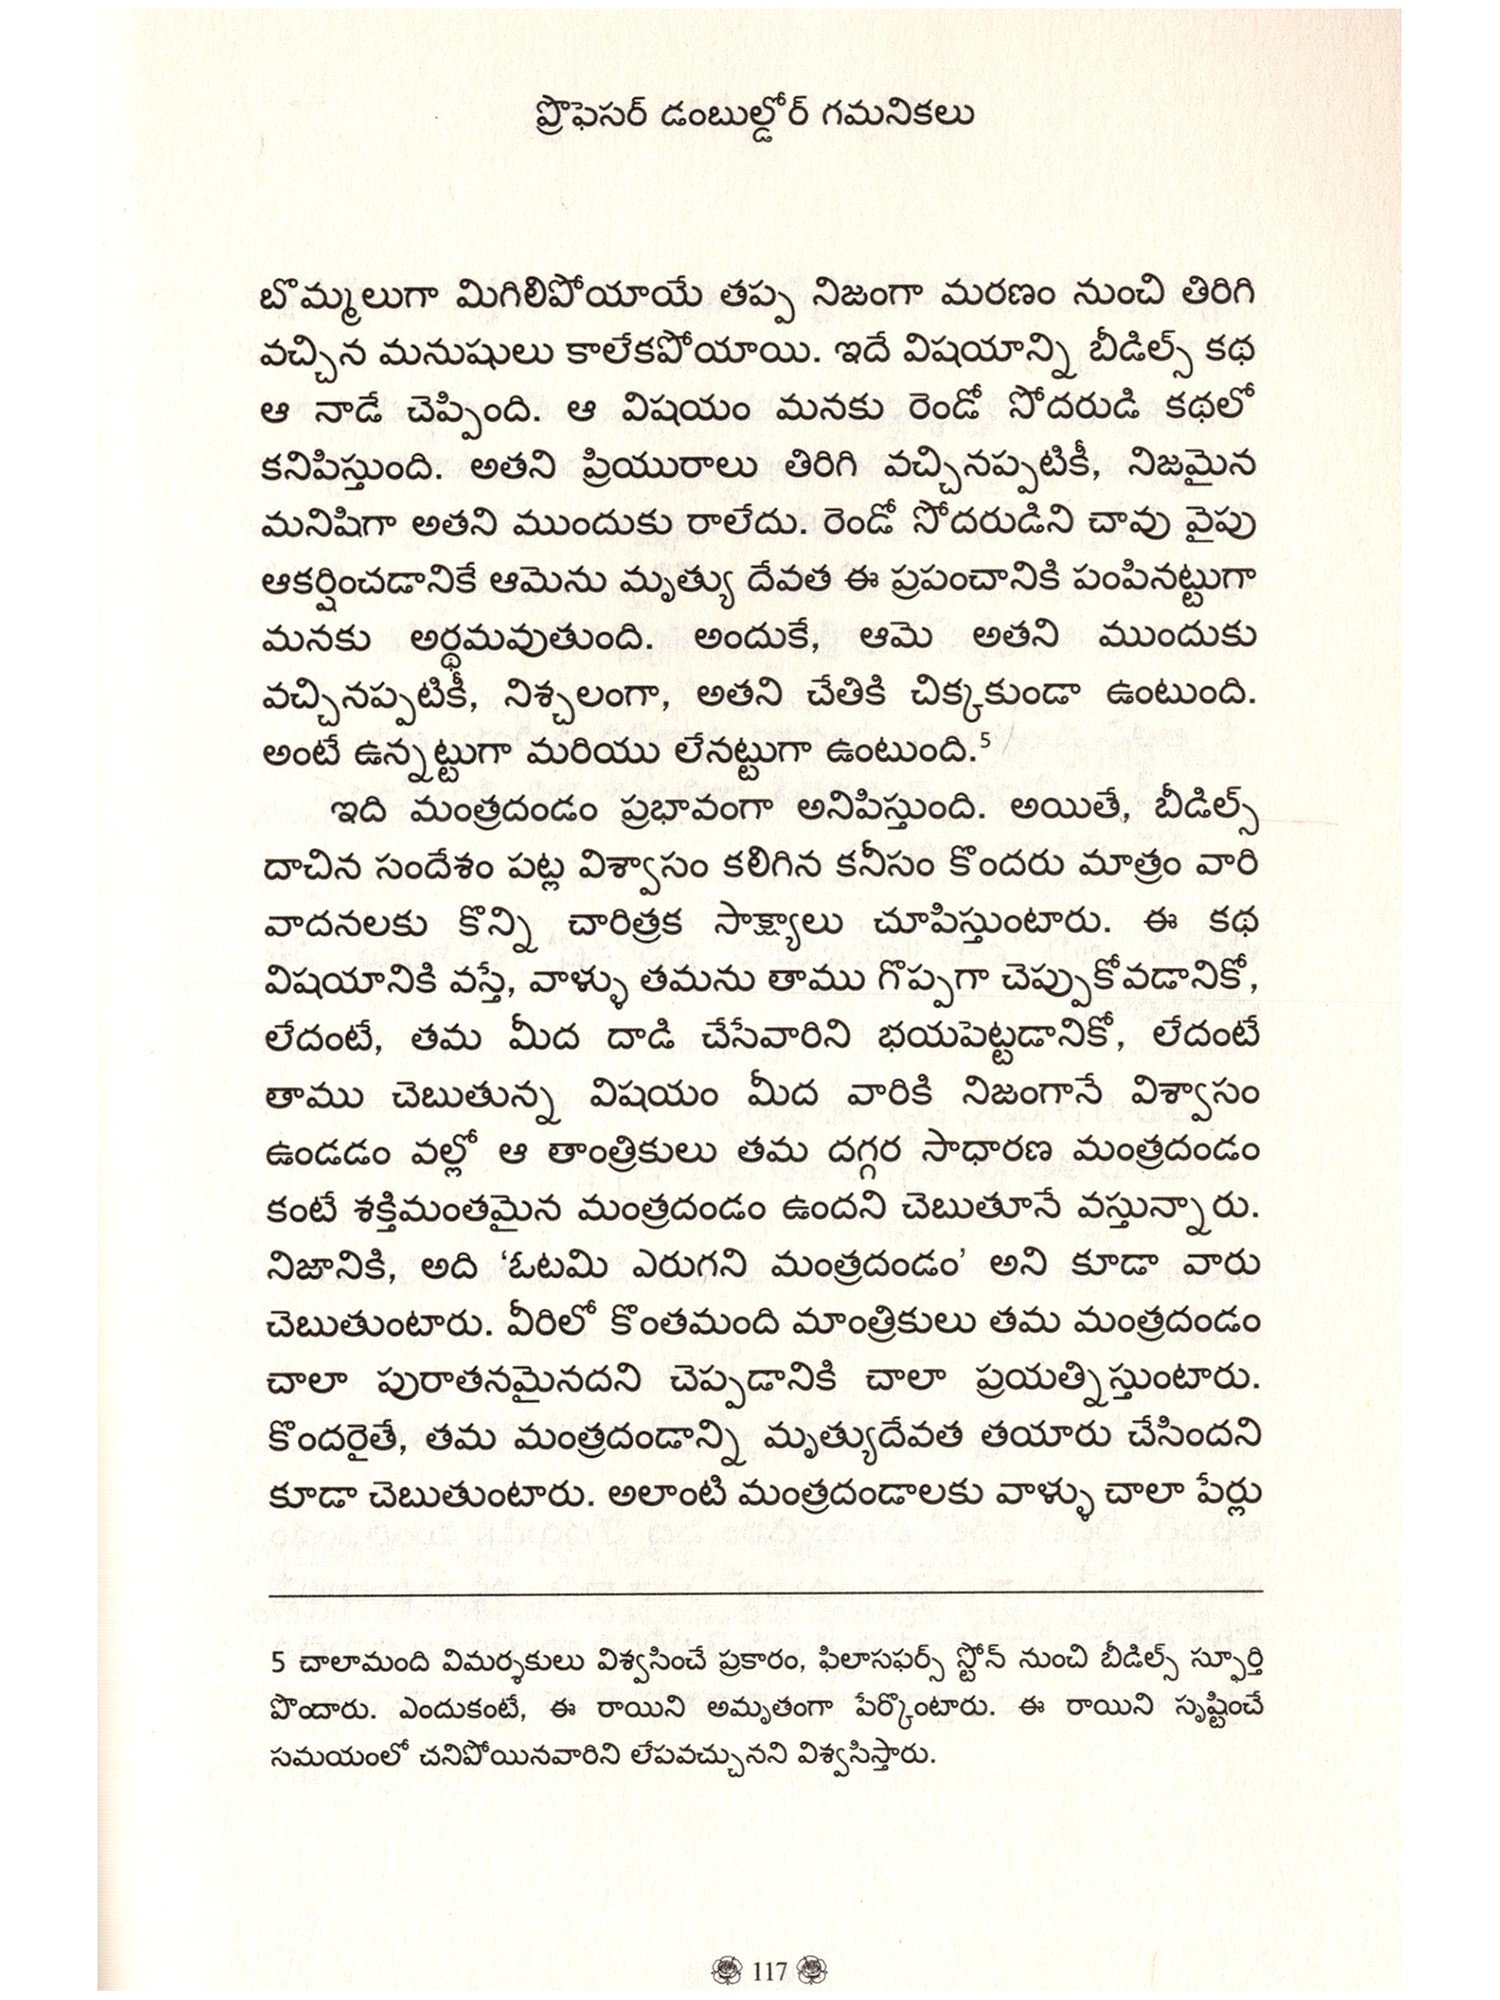 ప్రొఫెసర్ డంబుల్డోర్ గమనికలు
బొమ్మలుగా మిగిలిపోయాయే తప్ప నిజంగా మరణం నుంచి తిరిగి
వచ్చిన మనుషులు కాలేకపోయాయి. ఇదే విషయాన్ని బీడిల్స్ కథ
ఆ నాడే చెప్పింది. ఆ విషయం మనకు రెండో సోదరుడి కథలో
కనిపిస్తుంది. అతని ప్రియురాలు తిరిగి వచ్చినప్పటికీ, నిజమైన
మనిషిగా అతని ముందుకు రాలేదు. రెండో సోదరుడిని చావు వైపు
ఆకర్షించడానికే ఆమెను మృత్యు దేవత ఈ ప్రపంచానికి పంపినట్టుగా
మనకు అర్థమవుతుంది. అందుకే, ఆమె అతని ముందుకు
వచ్చినప్పటికీ, నిశ్చలంగా, అతని చేతికి చిక్కకుండా ఉంటుంది.
అంటే ఉన్నట్టుగా మరియు లేనట్టుగా ఉంటుంది.5
ఇది మంత్రదండం ప్రభావంగా అనిపిస్తుంది. అయితే, బీడిల్స్
దాచిన సందేశం పట్ల విశ్వాసం కలిగిన కనీసం కొందరు మాత్రం వారి
వాదనలకు కొన్ని చారిత్రక సాక్ష్యాలు చూపిస్తుంటారు. ఈ కథ
విషయానికి వస్తే, వాళ్ళు తమను తాము గొప్పగా చెప్పుకోవడానికో,
లేదంటే, తమ మీద దాడి చేసేవారిని భయపెట్టడానికో, లేదంటే
తాము చెబుతున్న విషయం మీద వారికి నిజంగానే విశ్వాసం
ఉండడం వల్లో ఆ తాంత్రికులు తమ దగ్గర సాధారణ మంత్రదండం
కంటే శక్తిమంతమైన మంత్రదండం ఉందని చెబుతూనే వస్తున్నారు.
నిజానికి, అది ‘ఓటమి ఎరుగని మంత్రదండం’ అని కూడా వారు
చెబుతుంటారు. వీరిలో కొంతమంది మాంత్రికులు తమ మంత్రదండం
చాలా పురాతనమైనదని చెప్పడానికి చాలా ప్రయత్నిస్తుంటారు.
కొందరైతే, తమ మంత్రదండాన్ని మృత్యుదేవత తయారు చేసిందని
కూడా చెబుతుంటారు. అలాంటి మంత్రదండాలకు వాళ్ళు చాలా పేర్లు
5 చాలామంది విమర్శకులు విశ్వసించే ప్రకారం, ఫిలాసఫర్స్ స్టోన్ నుంచి బీడిల్స్ స్ఫూర్తి
పొందారు. ఎందుకంటే, ఈ రాయిని అమృతంగా పేర్కొంటారు. ఈ రాయిని సృష్టించే
సమయంలో చనిపోయినవారిని లేపవచ్చునని విశ్వసిస్తారు.
117